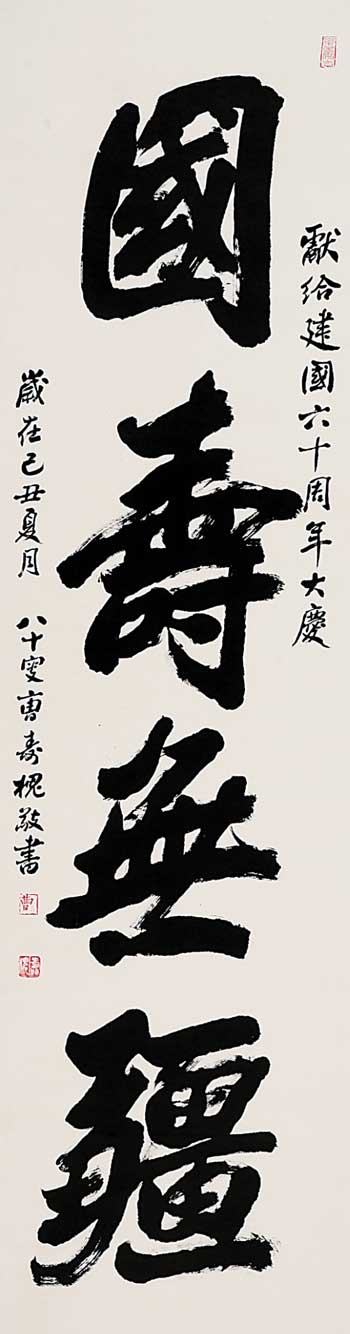 獻給建國六十周年大慶
國壽無疆
歲在己丑夏月 八十叟曹壽槐敬書
曹